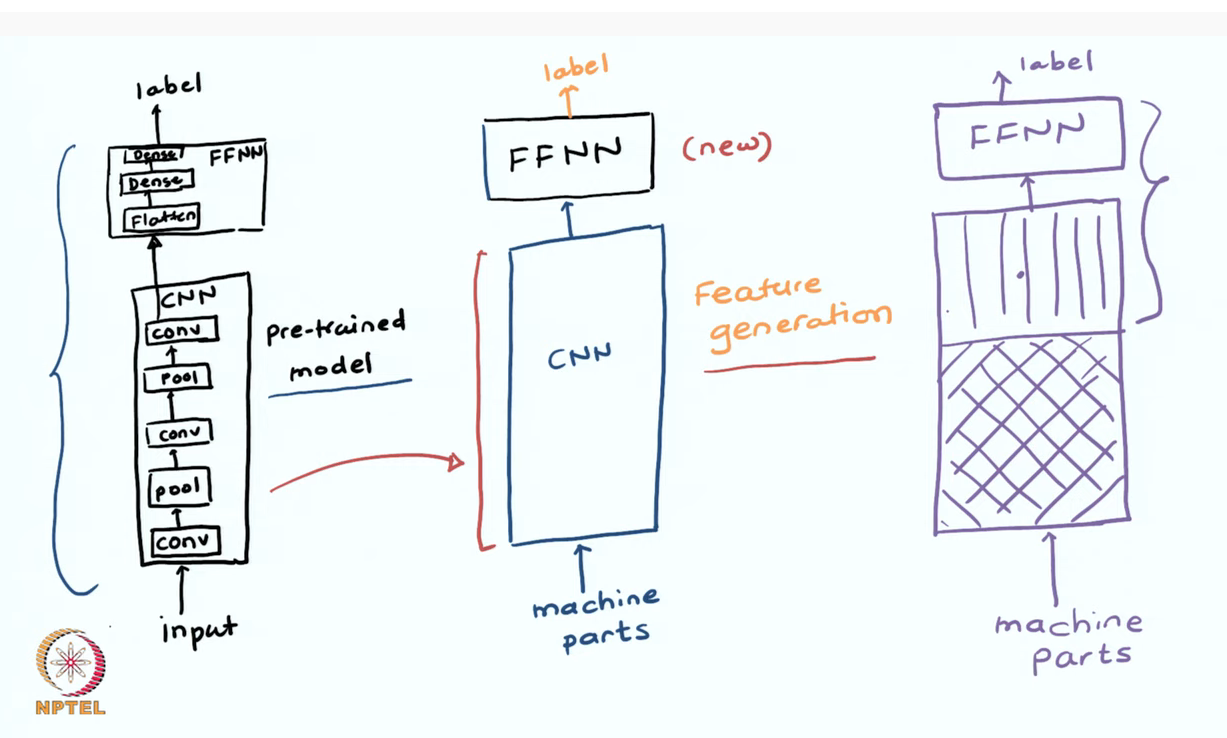 label
Dense
FFNN
Dense
Flatten
CNN
conv
pool
conv
pool
conv
input
pre-trained
model
label
FFNN
(new)
CNN
Feature
generation
machine
parts
label
FFNN
machine
parts
NPTEL